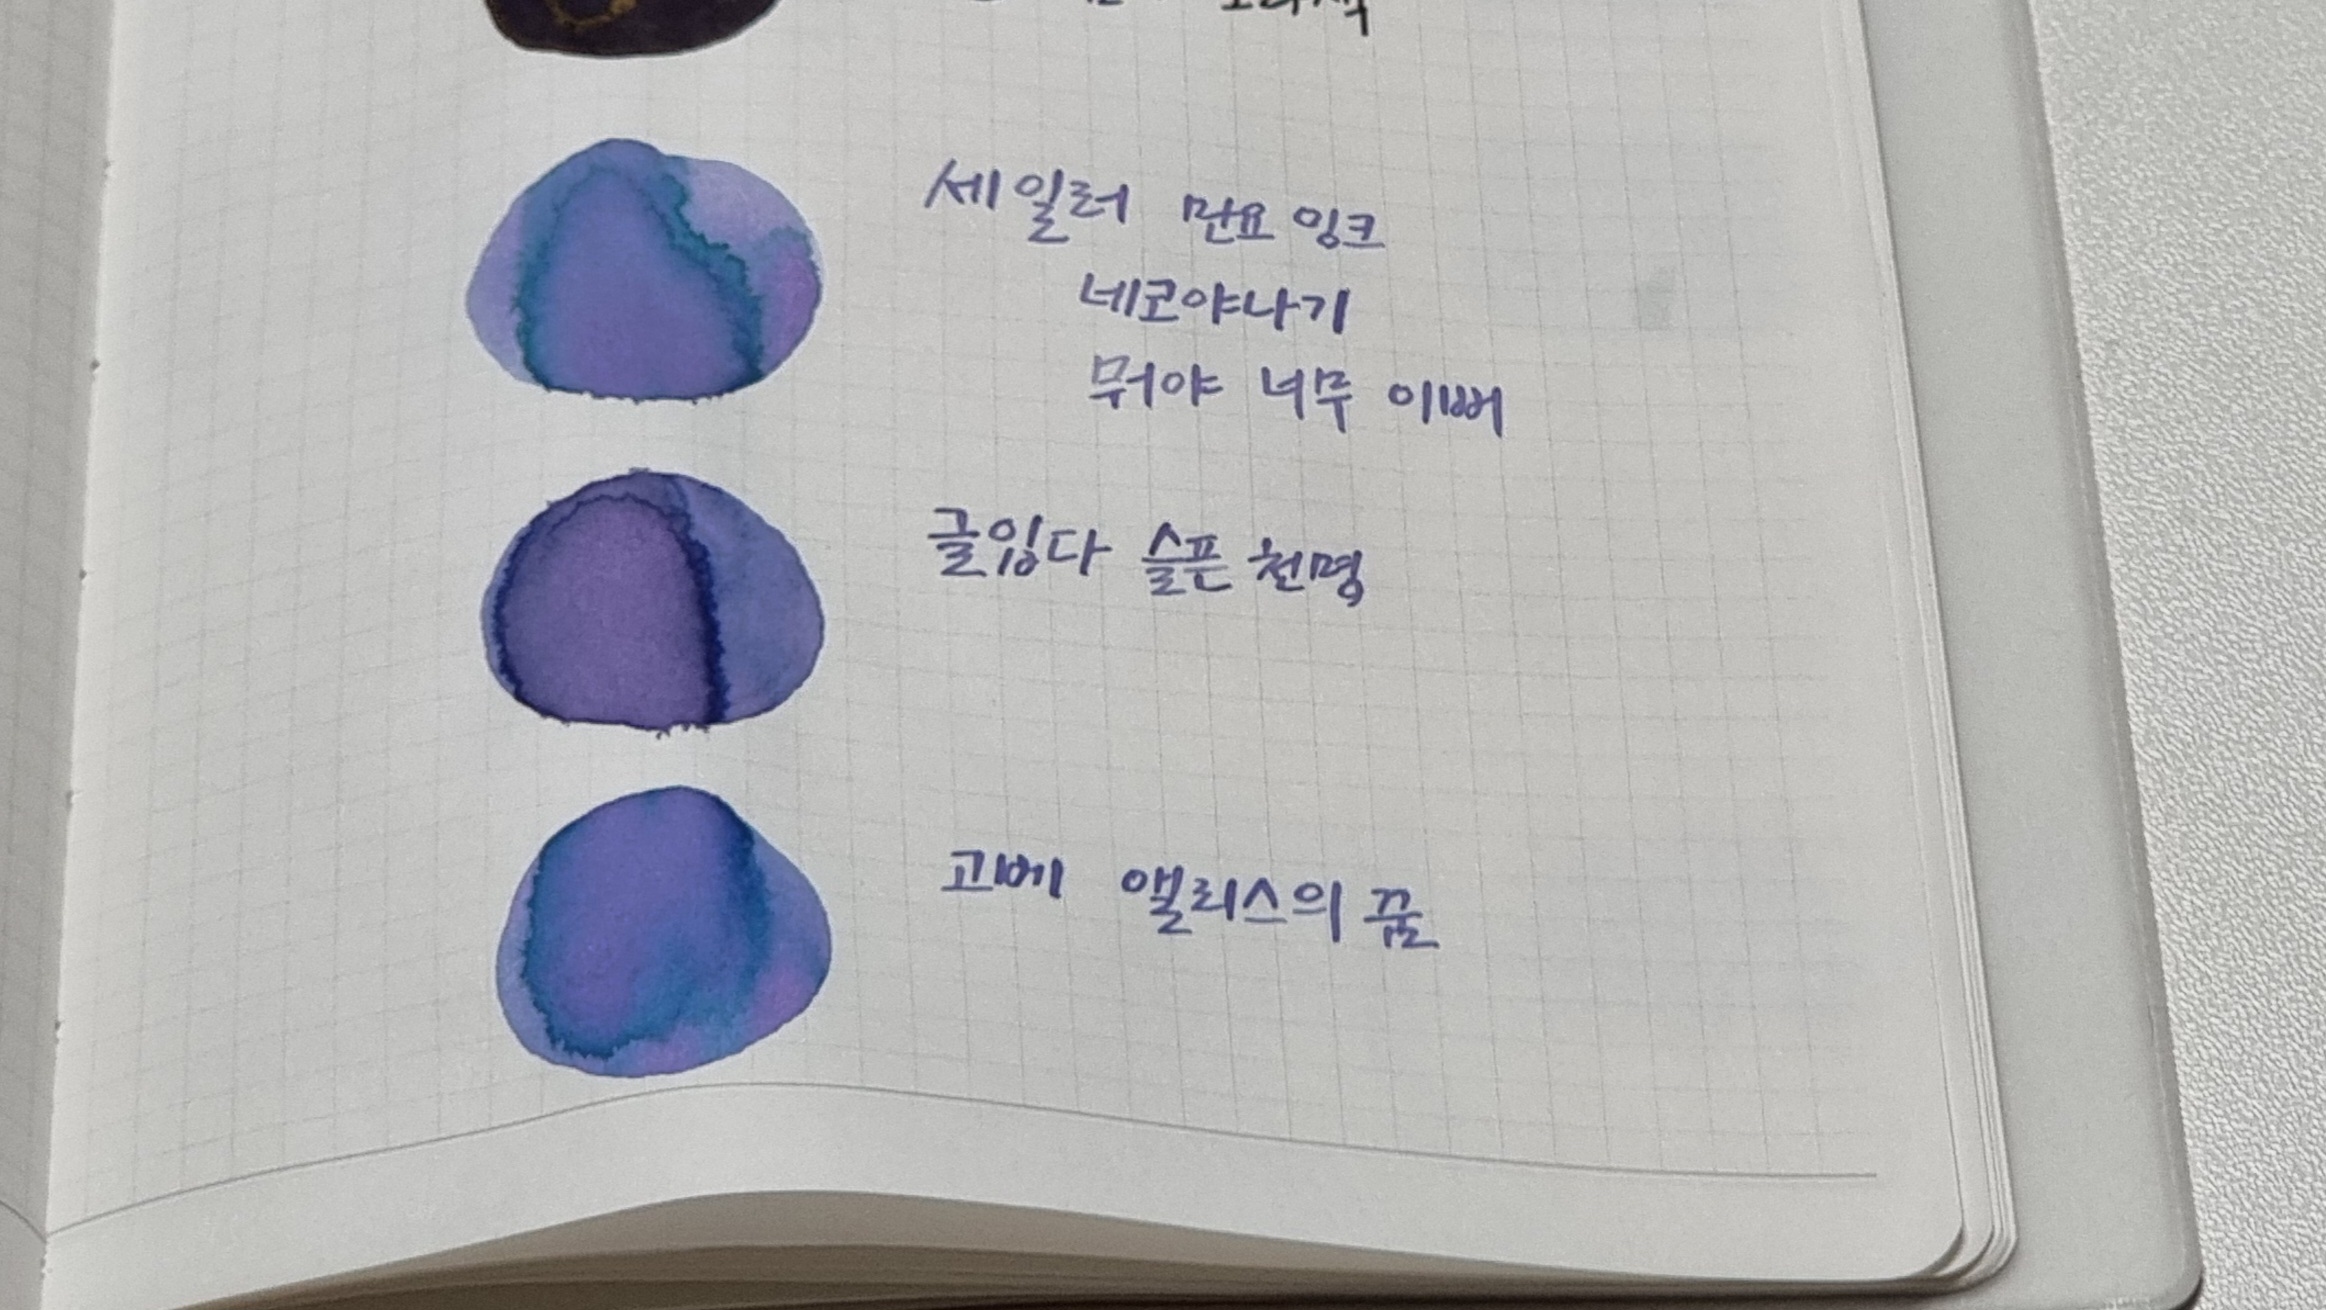 보라색
세일러 만요 잉크
네코야나기
뭐야 너무 이뻐
글입다 슬픈 천명
고베 앨리스의 꿈